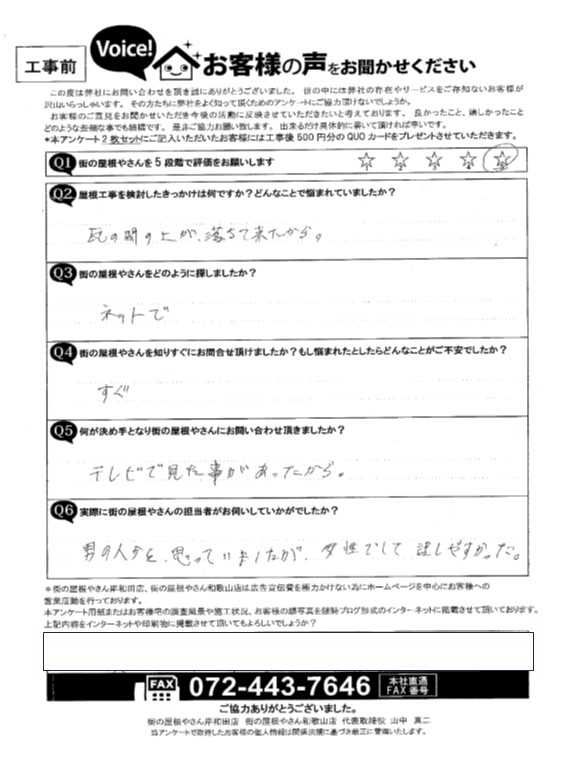 工事前
Voice!
お客様の声をお聞かせください
この度は弊社にお問い合わせを頂き誠にありがとうございました。世の中には弊社の存在やサービスをご存知ないお客様が
沢山いらっしゃいます。その方たちに弊社をよく知って頂くためのアンケートにご協力頂けないでしょうか。
お客様のご意見をお聞かせいただき今後の活動に反映させていただきたいと考えております。良かったこと、嬉しかったこと
どのような些細な事でも結構です。是非ご協力お願い致します。出来るだけ具体的に書いて頂ければ幸いです。
*本アンケート2枚セットにご記入いただいたお客様には工事後500円分のQUOカードをプレゼントさせていただきます。
Q1 街の屋根やさんを5段階で評価をお願いします 1 2 3 4 5
Q2 屋根工事を検討したきっかけは何ですか?どんなことで悩まれていましたか?
瓦の間の土が、落ちて来たから。
Q3 街の屋根やさんをどのように探しましたか?
ネットで
Q4 街の屋根やさんを知りすぐにお問合せ頂けましたか?もし悩まれたとしたらどんなことがご不安でしたか?
すぐ
Q5 何が決め手となり街の屋根やさんにお問い合わせ頂きましたか?
テレビで見た事があったから。
Q6 実際に街の屋根やさんの担当者がお伺いしていかがでしたか?
男の人かと、思っていましたが、女性でして話しやすかった。
*街の屋根やさん岸和田店、街の屋根やさん和歌山店は広告宣伝費を極力かけない為にホームページを中心にお客様への
営業活動を行っております。
本アンケート用紙またはお客様宅の調査風景や施工状況、お客様の顔写真を随時ブログ形式のインターネットに掲載させて頂いております。
上記内容をインターネットや印刷物に掲載させて頂いてもよろしいでしょうか?
FAX 072-443-7646 本社直通
FAX番号
ご協力ありがとうございました。
街の屋根やさん岸和田店 街の屋根やさん和歌山店 代表取締役 山中 真二
当アンケートで取得したお客様の個人情報は関係法規に基づき厳正に管理いたします。